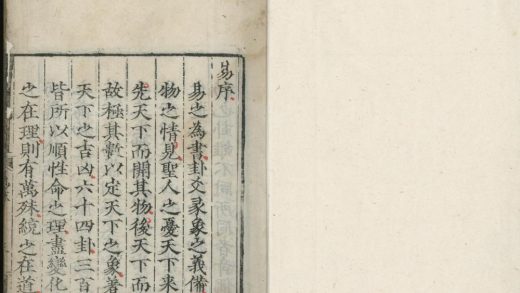 易序
易之為書卦爻彖象之義備
物之情見聖人之憂天下來
先天下而開其物後天下而
故極其數以定天下之象著
天下之吉凶六十四卦三百
皆所以順性命之理盡變化
之在理則有萬殊統之在道